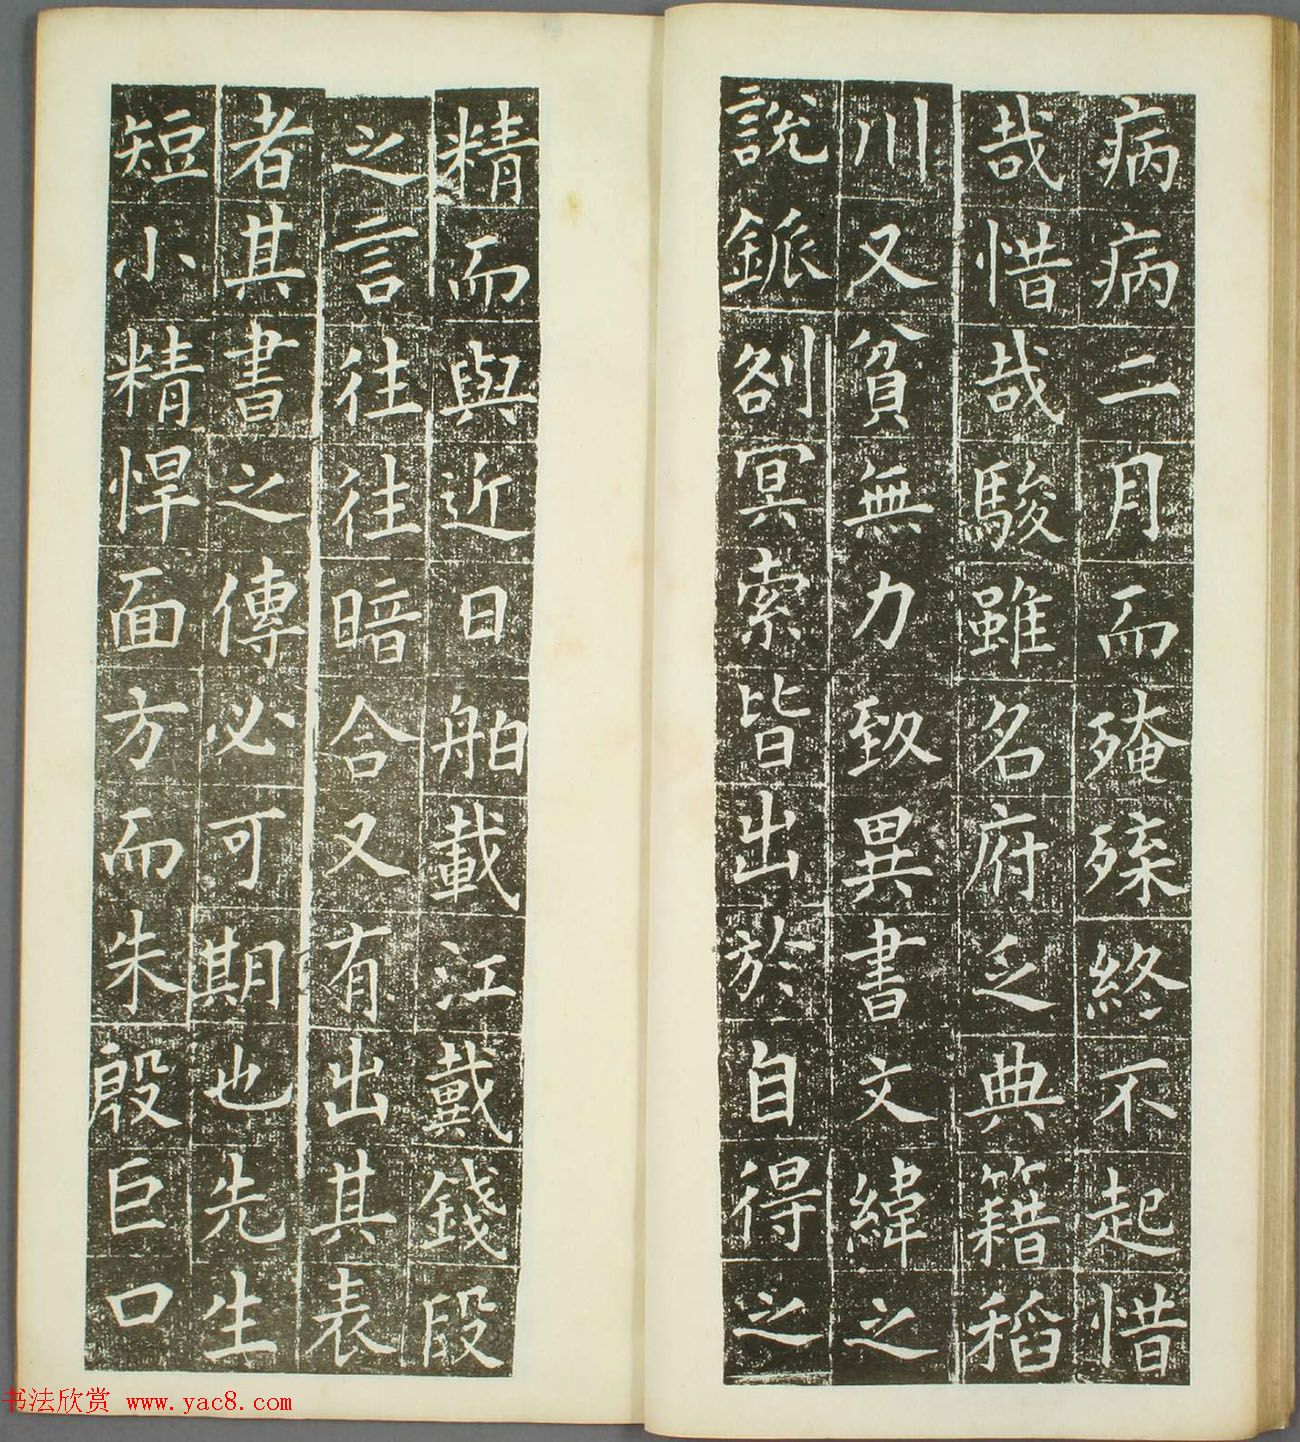 病病二月而殗殜終不起惜
哉惜哉駿雖名府乏典籍稻
川又貧無力致異書文緯之
說鈲劄冥索皆出於自得之
精而與近日舶載江戴錢段
之言往往暗合又有出其表
者其書之傳必可期也先生
短小精悍面方而朱殷巨口
书法欣赏 www.yac8.com